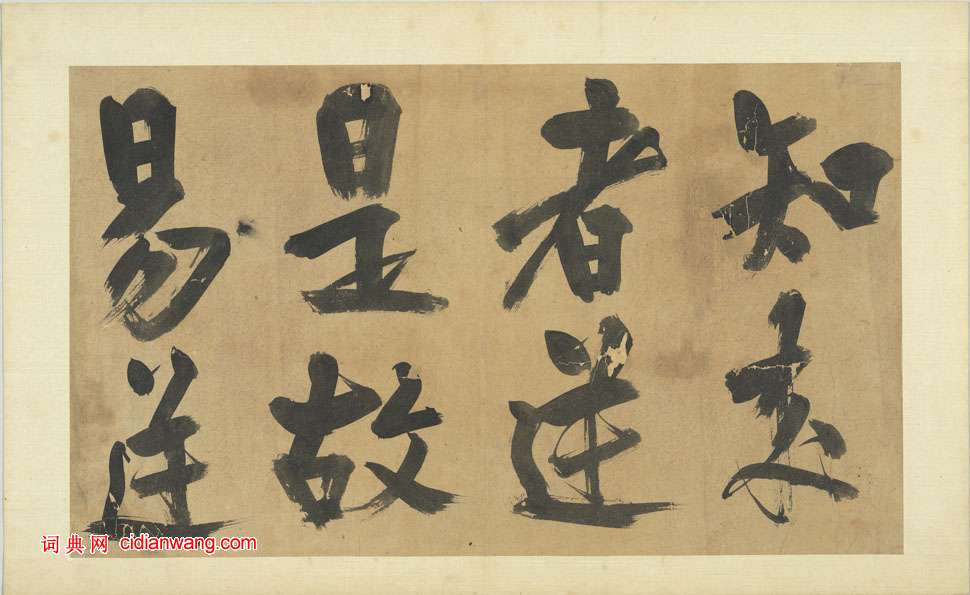 知来
者逆
是故
易逆
词典网 cidianwang.com